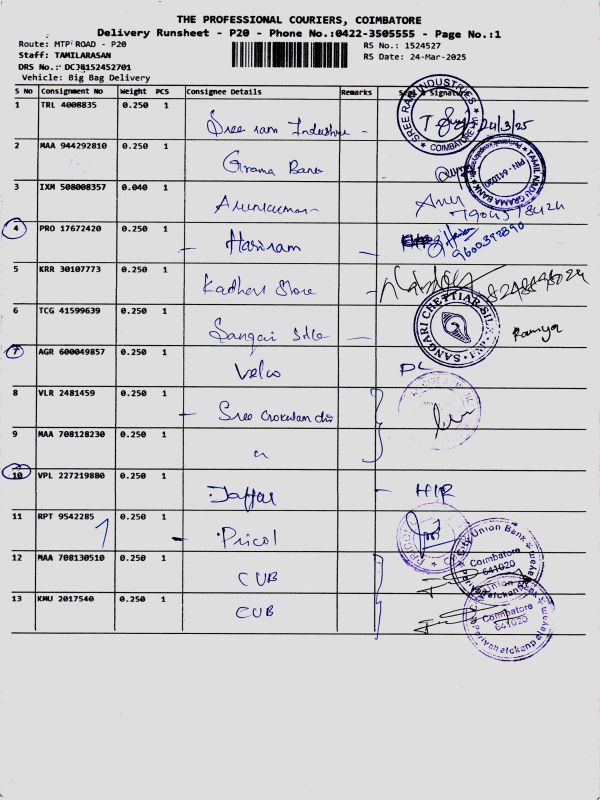 THE PROFESSIONAL COURIERS, COIMBATORE
Delivery Runsheet - P20 - Phone No.:0422-3505555 - Page No.:1
Route: MTP ROAD - P20 RS No.: 1524527
Staff: TAMILARASAN RS Date: 24-Mar-2025
DRS No.: DCJB152452701
Vehicle: Big Bag Delivery
S No Consignment No Weight PCS Consignee Details Remarks Seal & Signature
1 TRL 4008835 0.250 1 Sree ram Industries - 24/3/25
SREE RAM INDUSTRIES COIMBATORE
2 MAA 944292810 0.250 1 Grama Bank
TAMIL NADU GRAMA BANK PIN - 641020
3 IXM 508008357 0.040 1 Arunkumar
4 PRO 17672420 0.250 1 - Hariram 9600392890
5 KRR 30107773 0.250 1 Kadheri Store
6 TCG 41599639 0.250 1 Sangari Silk - Ramya
SANGARI CHETTIAR SILK
7 AGR 600049857 0.250 1 Velco DL
8 VLR 2481459 0.250 1 - Sree
9 MAA 708128230 0.250 1 "
10 VPL 227219880 0.250 1 Jaffar - HIR
11 RPT 9542285 0.250 1 - Pricol
PRICOL
12 MAA 708130510 0.250 1 CUB
City Union Bank Coimbatore 641020
13 KMU 2017540 0.250 1 CUB
City Union Bank Coimbatore 641020